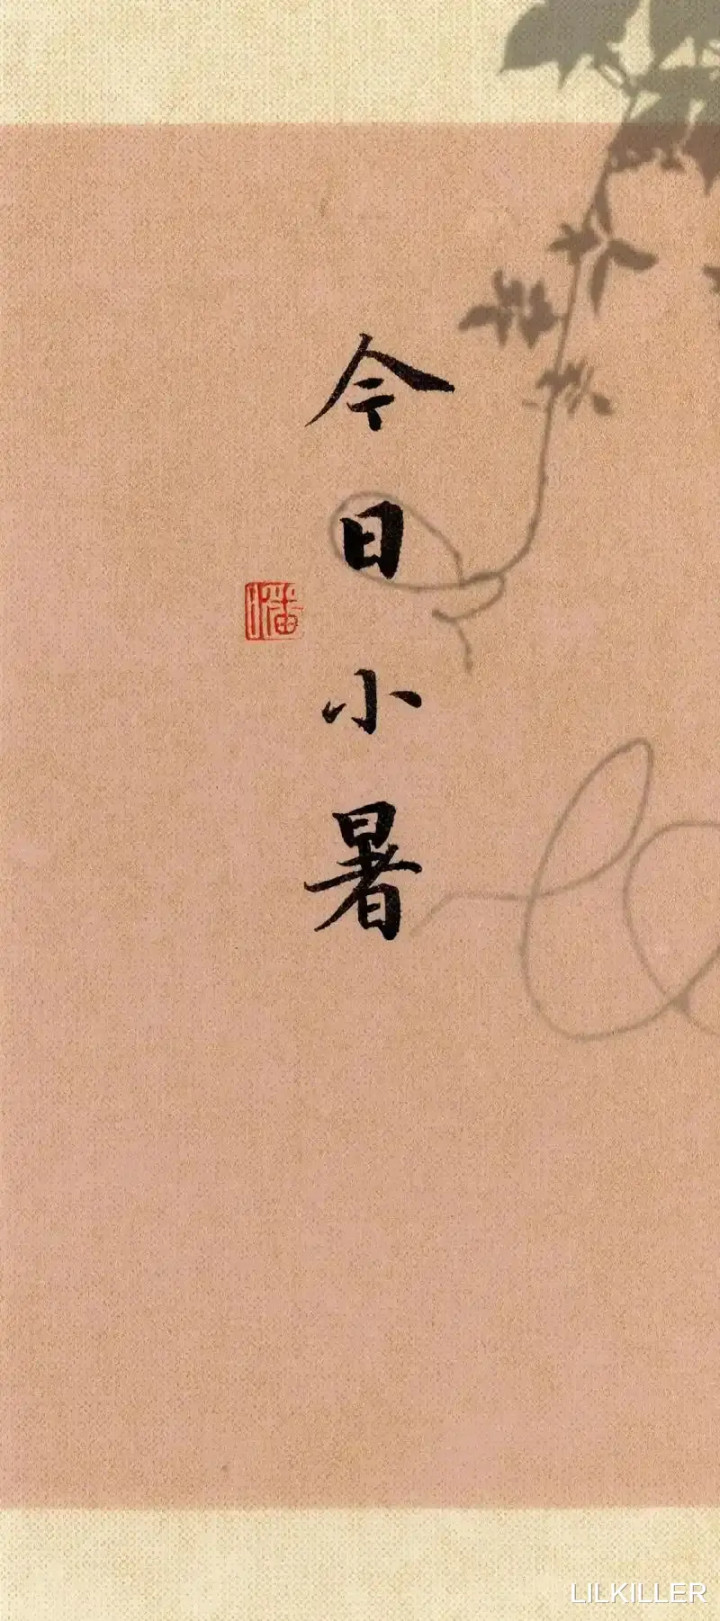 今日小暑
潘
LILKILLER